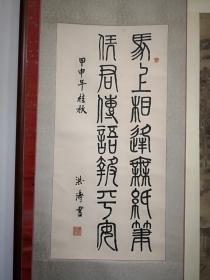 馬上相逢無紙筆
憑君傳語報平安
甲申年桂秋
洪濤書